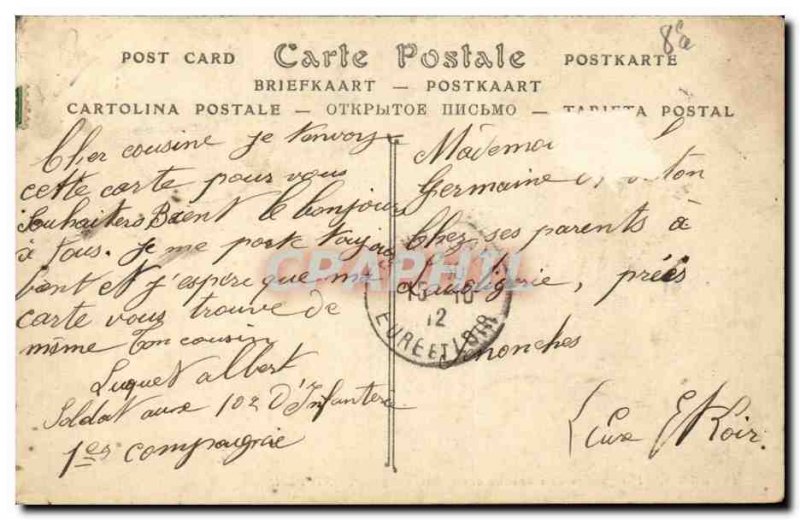 8e
POST CARD Carte Postale POSTKARTE
BRIEFKAART — POSTKAART
CARTOLINA POSTALE — ОТКРЫТОЕ ПИСЬМО — TARJETA POSTAL
Cher cousine je tenvoy
cette carte pour vous
Souhaiters Baent le bonjour
à tous. je me porte toujours
bient et j'espere que ma
carte vous trouve de
même ton cousin
Luquet albert
Soldat aux 102 D'Infanterie
1er compagnie
Mademoi
Germaine
Chez ses parents à
, prées
Senonches
Eure & Loir.
15 - 10
12
EURE ET LOIR
CPAPHIL